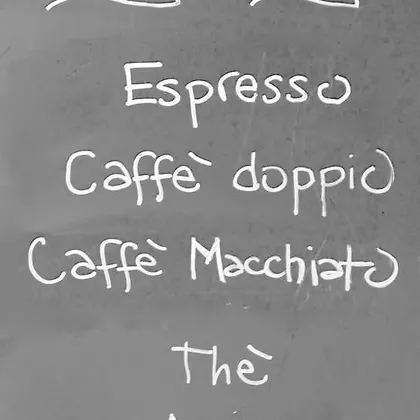 Espresso
Caffè doppio
Caffè Macchiato
Thè